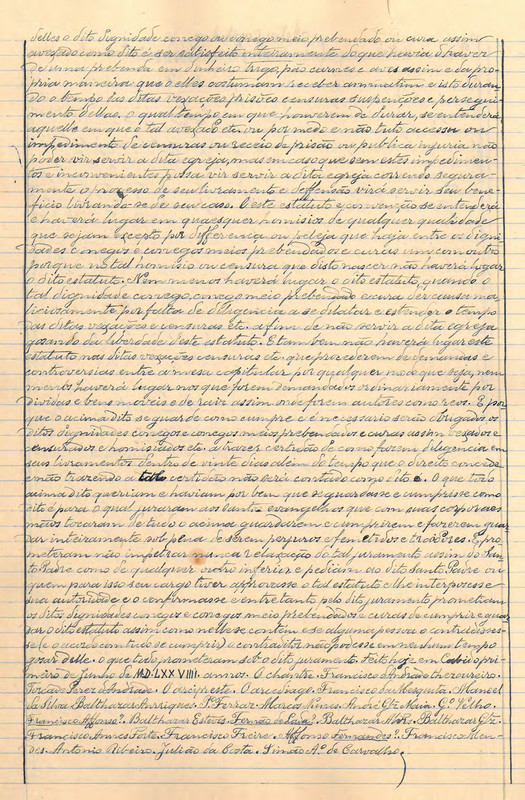 delles o dito dignidade conego ou conego meio prebendado ou cura assim
avexado como dito é ser satisfeito enteiramente do que havia d'haver
de uma prebenda em dinheiro trigo, pão carnes e aves assim e da pro-
pria maneira que o elles costumam receber annuatim e isto duran-
do o tempo das ditas vexações prisões censuras suspenções e persegui-
mento dellas. o qual tempo em que houverem de durar, se entenderá
aquelle em que o tal avexado etc. ou por medo e não tuto accessu ou
impedimento de censuras ou receio de prisão ou publica injuria não
poder vir servir a dita egreja, mas em caso que sem estes impedimen-
tos e inconvenientes possa vir servir a dita egreja correndo segura-
mente o processo de seu livramento e deffensão virá servir seu bene-
ficio livrando-se de seu caso. O este estatuto e convenção se entenderá
e haverá lugar em quaesquer homisios de qualquer qualidade
que sejam excepto por differencia ou peleja que haja entre os digni-
dades conegos e conegos meios prebendados e curas um com outro
porque no tal homisio ou censura que disto nascer não haverá lugar
o dito estatuto. Nem menos haverá lugar o dito estatuto, quando o
tal dignidade conego, conego meio prebendado e cura der causa ma-
liciosamente por faltas de diligencia a se dilatar e estender o tempo
das ditas vexações e censuras etc. a fim de não servir a dita egreja
gosando da liberdade deste estatuto. E tambem não haverá lugar este
estatuto nas ditas vexações censuras etc. que procederem de demandas e
controversias entre a mesa capitular por qualquer modo que seja, nem
menos haverá lugar nos que forem demandados ordinariamente por
dividas e bens moveis e de raiz assim onde forem autores como reos. E por
que o acima dito se guarde como cumpre e é necessario serão obrigados os
ditos dignidades conegos e conegos meios prebendados e curas assim vexados e
censurados e homisiados etc. a trazer certidão de como fazem diligencia em
seus livramentos dentro de vinte dias alem do tempo que o direito concede
e não trazendo a tal certidão não será contado como dito é. O que todo
acima dito queriam e haviam por bem que se guardasse e cumprisse como
dito é para o qual juraram aos Santos evangelhos que com suas corporaes
mãos tocaram de tudo o acima guardarem e cumprirem e fazerem guar-
dar inteiramente sob pena de serem perjuros e fementidos e trédores. E pro-
meteram não impetrar nunca relaxação do tal juramento assim do San-
to Padre como de qualquer outro inferior e pediam ao dito Santo Padre ou
quem para isso seu cargo tiver approvasse o tal estatuto e lhe interposesse
sua autoridade e o confirmasse e entretanto, pelo dito juramento prometiam
os ditos dignidades conegos e conegos meios prebendados e curas de cumprir e guar-
dar o dito estatuto assim como nelle se contém e se alguma pessoa o contradisses-
se (e o accordo comtudo se cumprir) o contraditor não podesse em nenhum tempo
gosar delle. O que todo prometeram sob o dito juramento. Feito hoje em Cabido pri-
meiro de Junho M.D.LXXVIIII. annos. O chantre. Francisco Andrade thezoureiro.
Torcade Peres Andrade. O arcipreste. O arcediago. Francisco da Mesquita. Manoel
da Silva. Balthazar Anriques. P. Ferraz. Marcos Nunes. André Glz. Naia. G.º Velho.
Francisco Affonso?. Balthazar Esteves. Fernão de Laia?. Balthazar Alvr. Balthazar Glz.
Francisco Annes Forte. Francisco Freire. Affonso Fernandes?. Francisco Men-
des. Antonio Ribeiro. Julião da Costa. Simão A.º de Carvalho.